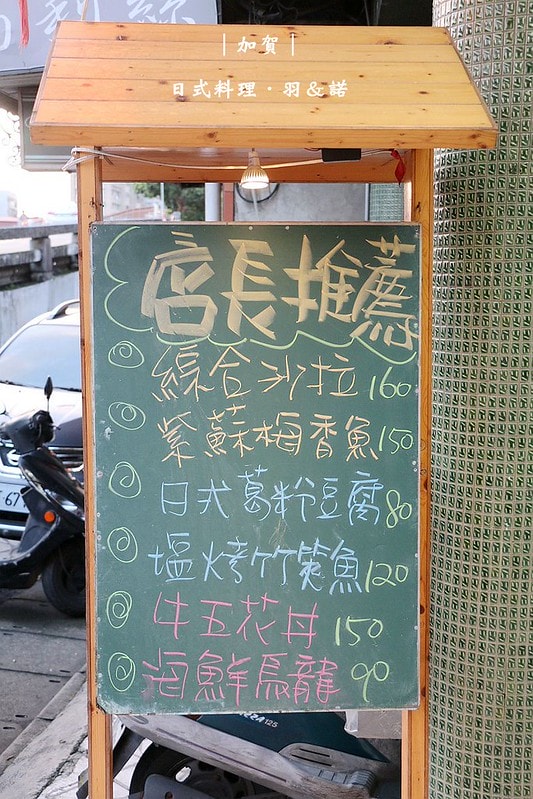 |加賀|
日式料理·羽&諾
店長推薦
綜合沙拉160
紫蘇梅香魚150
日式葛粉豆腐80
塩烤竹筴魚120
牛五花丼150
海鮮烏龍90
125